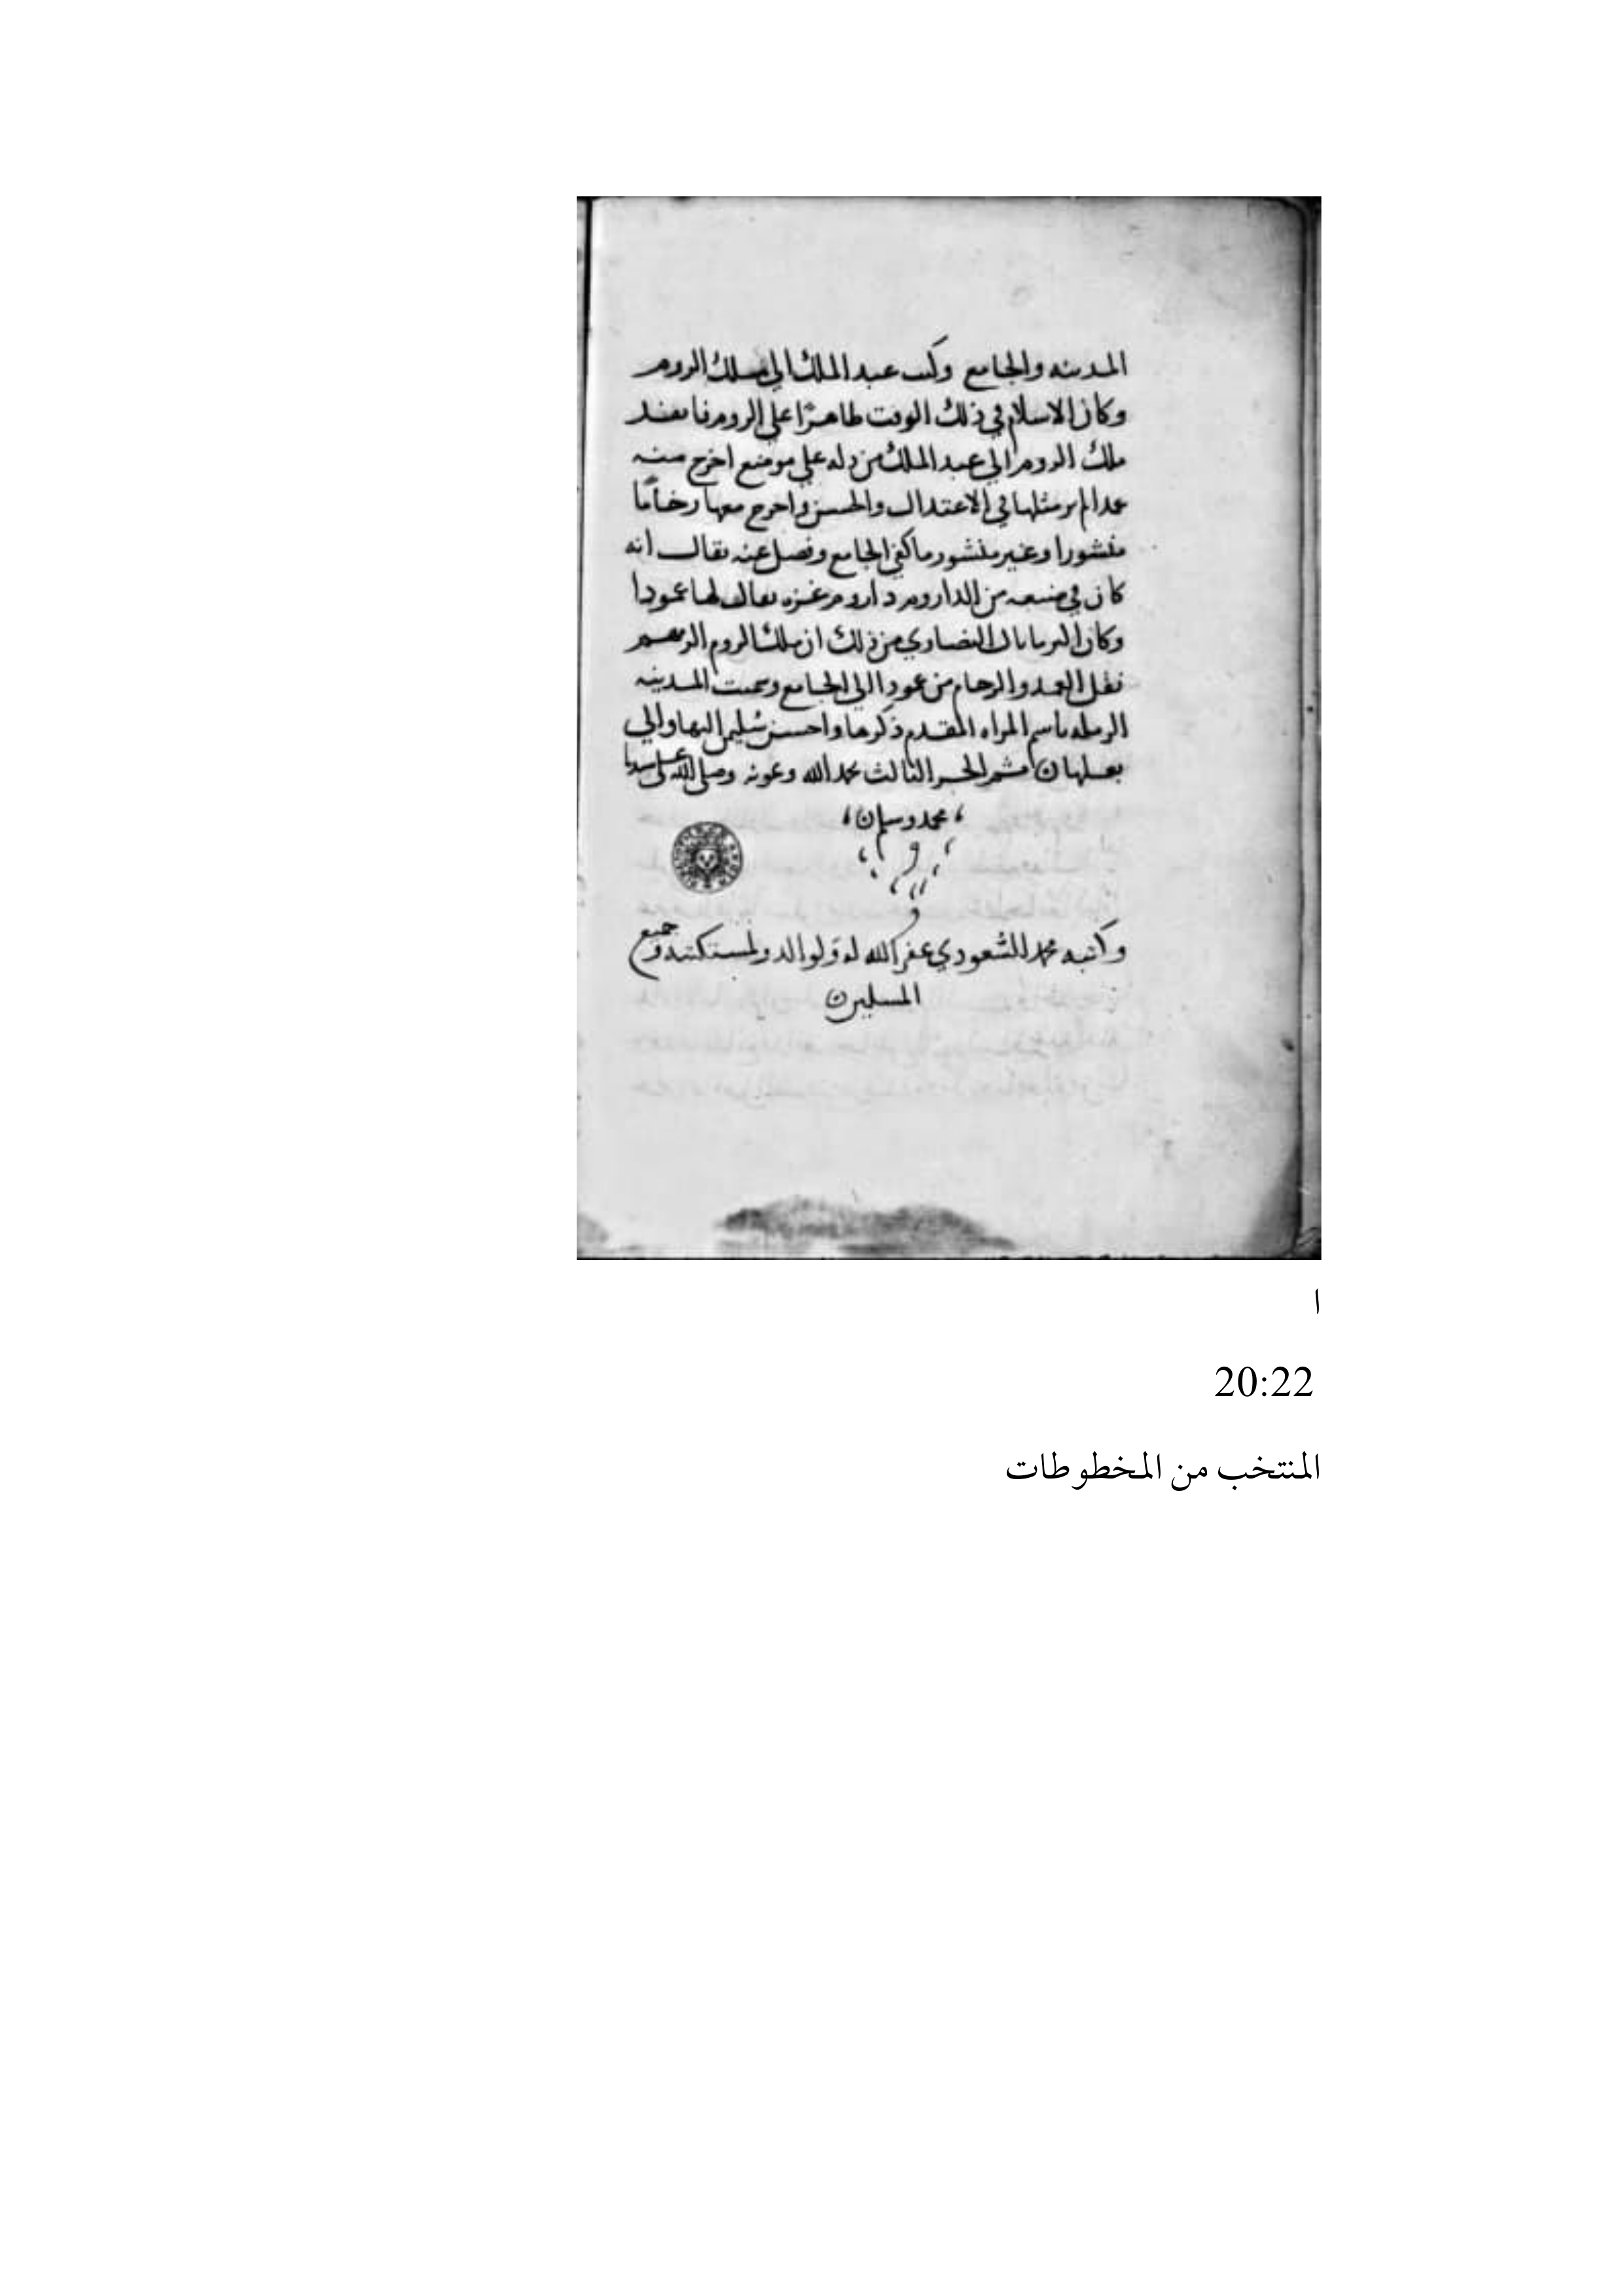 المدينه والجامع وكتب عبد الملك الي ملك الروم
وكان الاسلام في ذلك الوقت ظاهرًا علي الروم فانفد
ملك الروم الي عبد الملك من دله علي موضع اخرج منه
عمدا لم ير مثلها في الاعتدال والحسن واخرج معها رخامًا
منشورا وغير منشور ما كفي الجامع وفضل عنه يقال انه
كان في ضيعه من الداروم داروم غزه يقال لها عمودا
وكان النصاري من ذلك ان ملك الروم
نقل العمد والرخام من عمودا الي الجامع وسميت المدينه
الرمله باسم المراه المقدم ذكرها واحسن سليمن اليها والي
بعلها الثالث بحمد الله وعونه وصلي الله علي سيدنا
محمد وسلم
وكاتبه محمد الشعودي غفر الله له ولوالديه ولمستكتبه وجميع
المسلمين
ا
20:22
المنتخب من المخطوطات